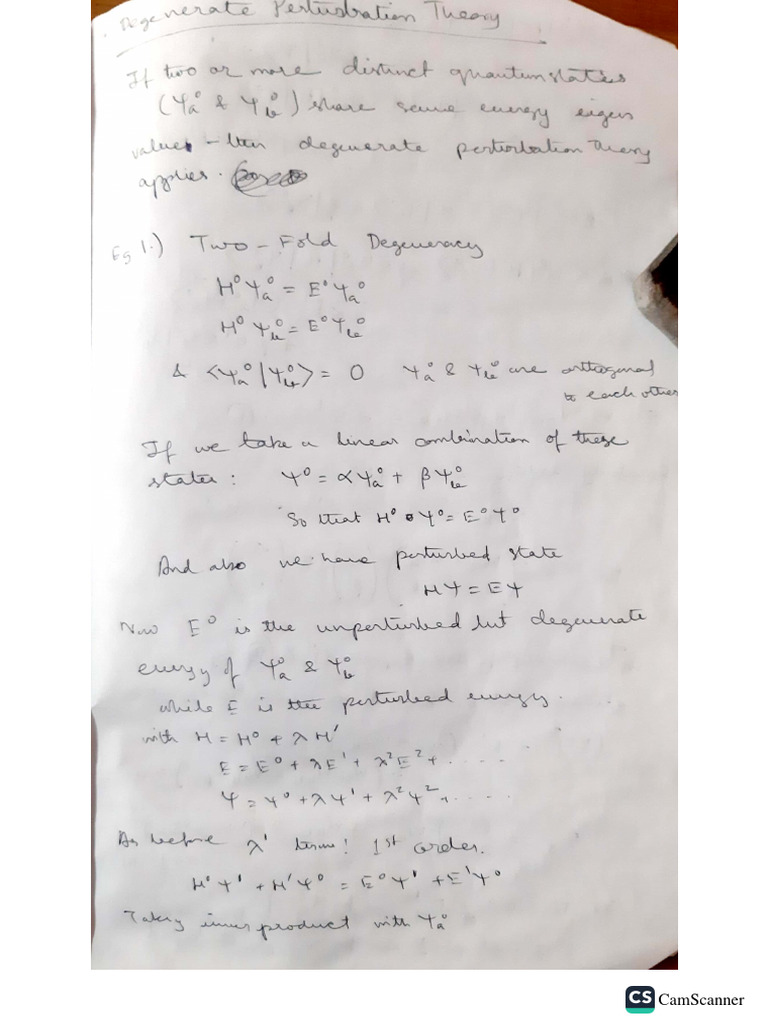 Degenerate Perturbration Theory
If two or more distinct quantum states
(Ψₐ⁰ & Ψ_b⁰) share same energy eigen
values - then degenerate perturbation Theory
applies.
Eg 1.) Two-Fold Degeneracy
H⁰Ψₐ⁰ = E⁰Ψₐ⁰
H⁰Ψ_b⁰ = E⁰Ψ_b⁰
& <Ψₐ⁰|Ψ_b⁰> = 0 Ψₐ⁰ & Ψ_b⁰ are orthogonal
to each other
If we take a linear combination of these
states : Ψ⁰ = αΨₐ⁰ + βΨ_b⁰
So that H⁰Ψ⁰ = E⁰Ψ⁰
And also we have perturbed state
HΨ = EΨ
Now E⁰ is the unperturbed but degenerate
energy of Ψₐ⁰ & Ψ_b⁰
while E is the perturbed energy.
with H = H⁰ + λH'
E = E⁰ + λE¹ + λ²E² + .....
Ψ = Ψ⁰ + λΨ¹ + λ²Ψ² + .....
As before λ¹ terms! 1st order.
H⁰Ψ¹ + H'Ψ⁰ = E⁰Ψ¹ + E¹Ψ⁰
Taking inner product with Ψₐ⁰
CS CamScanner